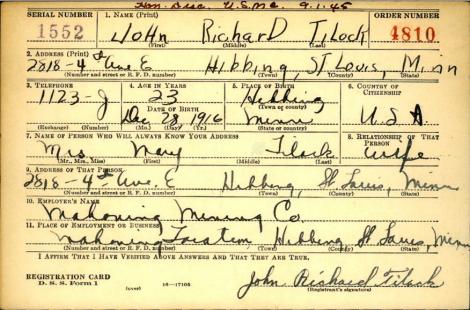 Hon. Disc. U.S.M.C. 9-1-45
SERIAL NUMBER 1. NAME (Print) ORDER NUMBER
1552 JOHN RICHARD TLOCK 4810
(First) (Middle) (Last)
2. ADDRESS (Print)
2818-4th Ave. E Hibbing, St Louis, Minn
(Number and street or R. F. D. number) (Town) (County) (State)
3. TELEPHONE 4. AGE IN YEARS 5. PLACE OF BIRTH 6. COUNTRY OF CITIZENSHIP
1123-J 23 Hibbing
DATE OF BIRTH (Town or county)
Dec 28, 1916 Minn U.S.A
(Exchange) (Number) (Mo.) (Day) (Yr.) (State or country)
7. NAME OF PERSON WHO WILL ALWAYS KNOW YOUR ADDRESS 8. RELATIONSHIP OF THAT PERSON
Mrs Mary Tlock wife
(Mr., Mrs., Miss) (First) (Middle) (Last)
9. ADDRESS OF THAT PERSON
2818-4th Ave E Hibbing, St. Louis, Minn
(Number and street or R. F. D. number) (Town) (County) (State)
10. EMPLOYER'S NAME
Mahoning Mining Co.
11. PLACE OF EMPLOYMENT OR BUSINESS
Mahoning Location, Hibbing St. Louis, Minn
(Number and street or R. F. D. number) (Town) (County) (State)
I AFFIRM THAT I HAVE VERIFIED ABOVE ANSWERS AND THAT THEY ARE TRUE.
REGISTRATION CARD
D. S. S. Form 1 (over) 16-17105 John Richard Tlock
(Registrant's signature)